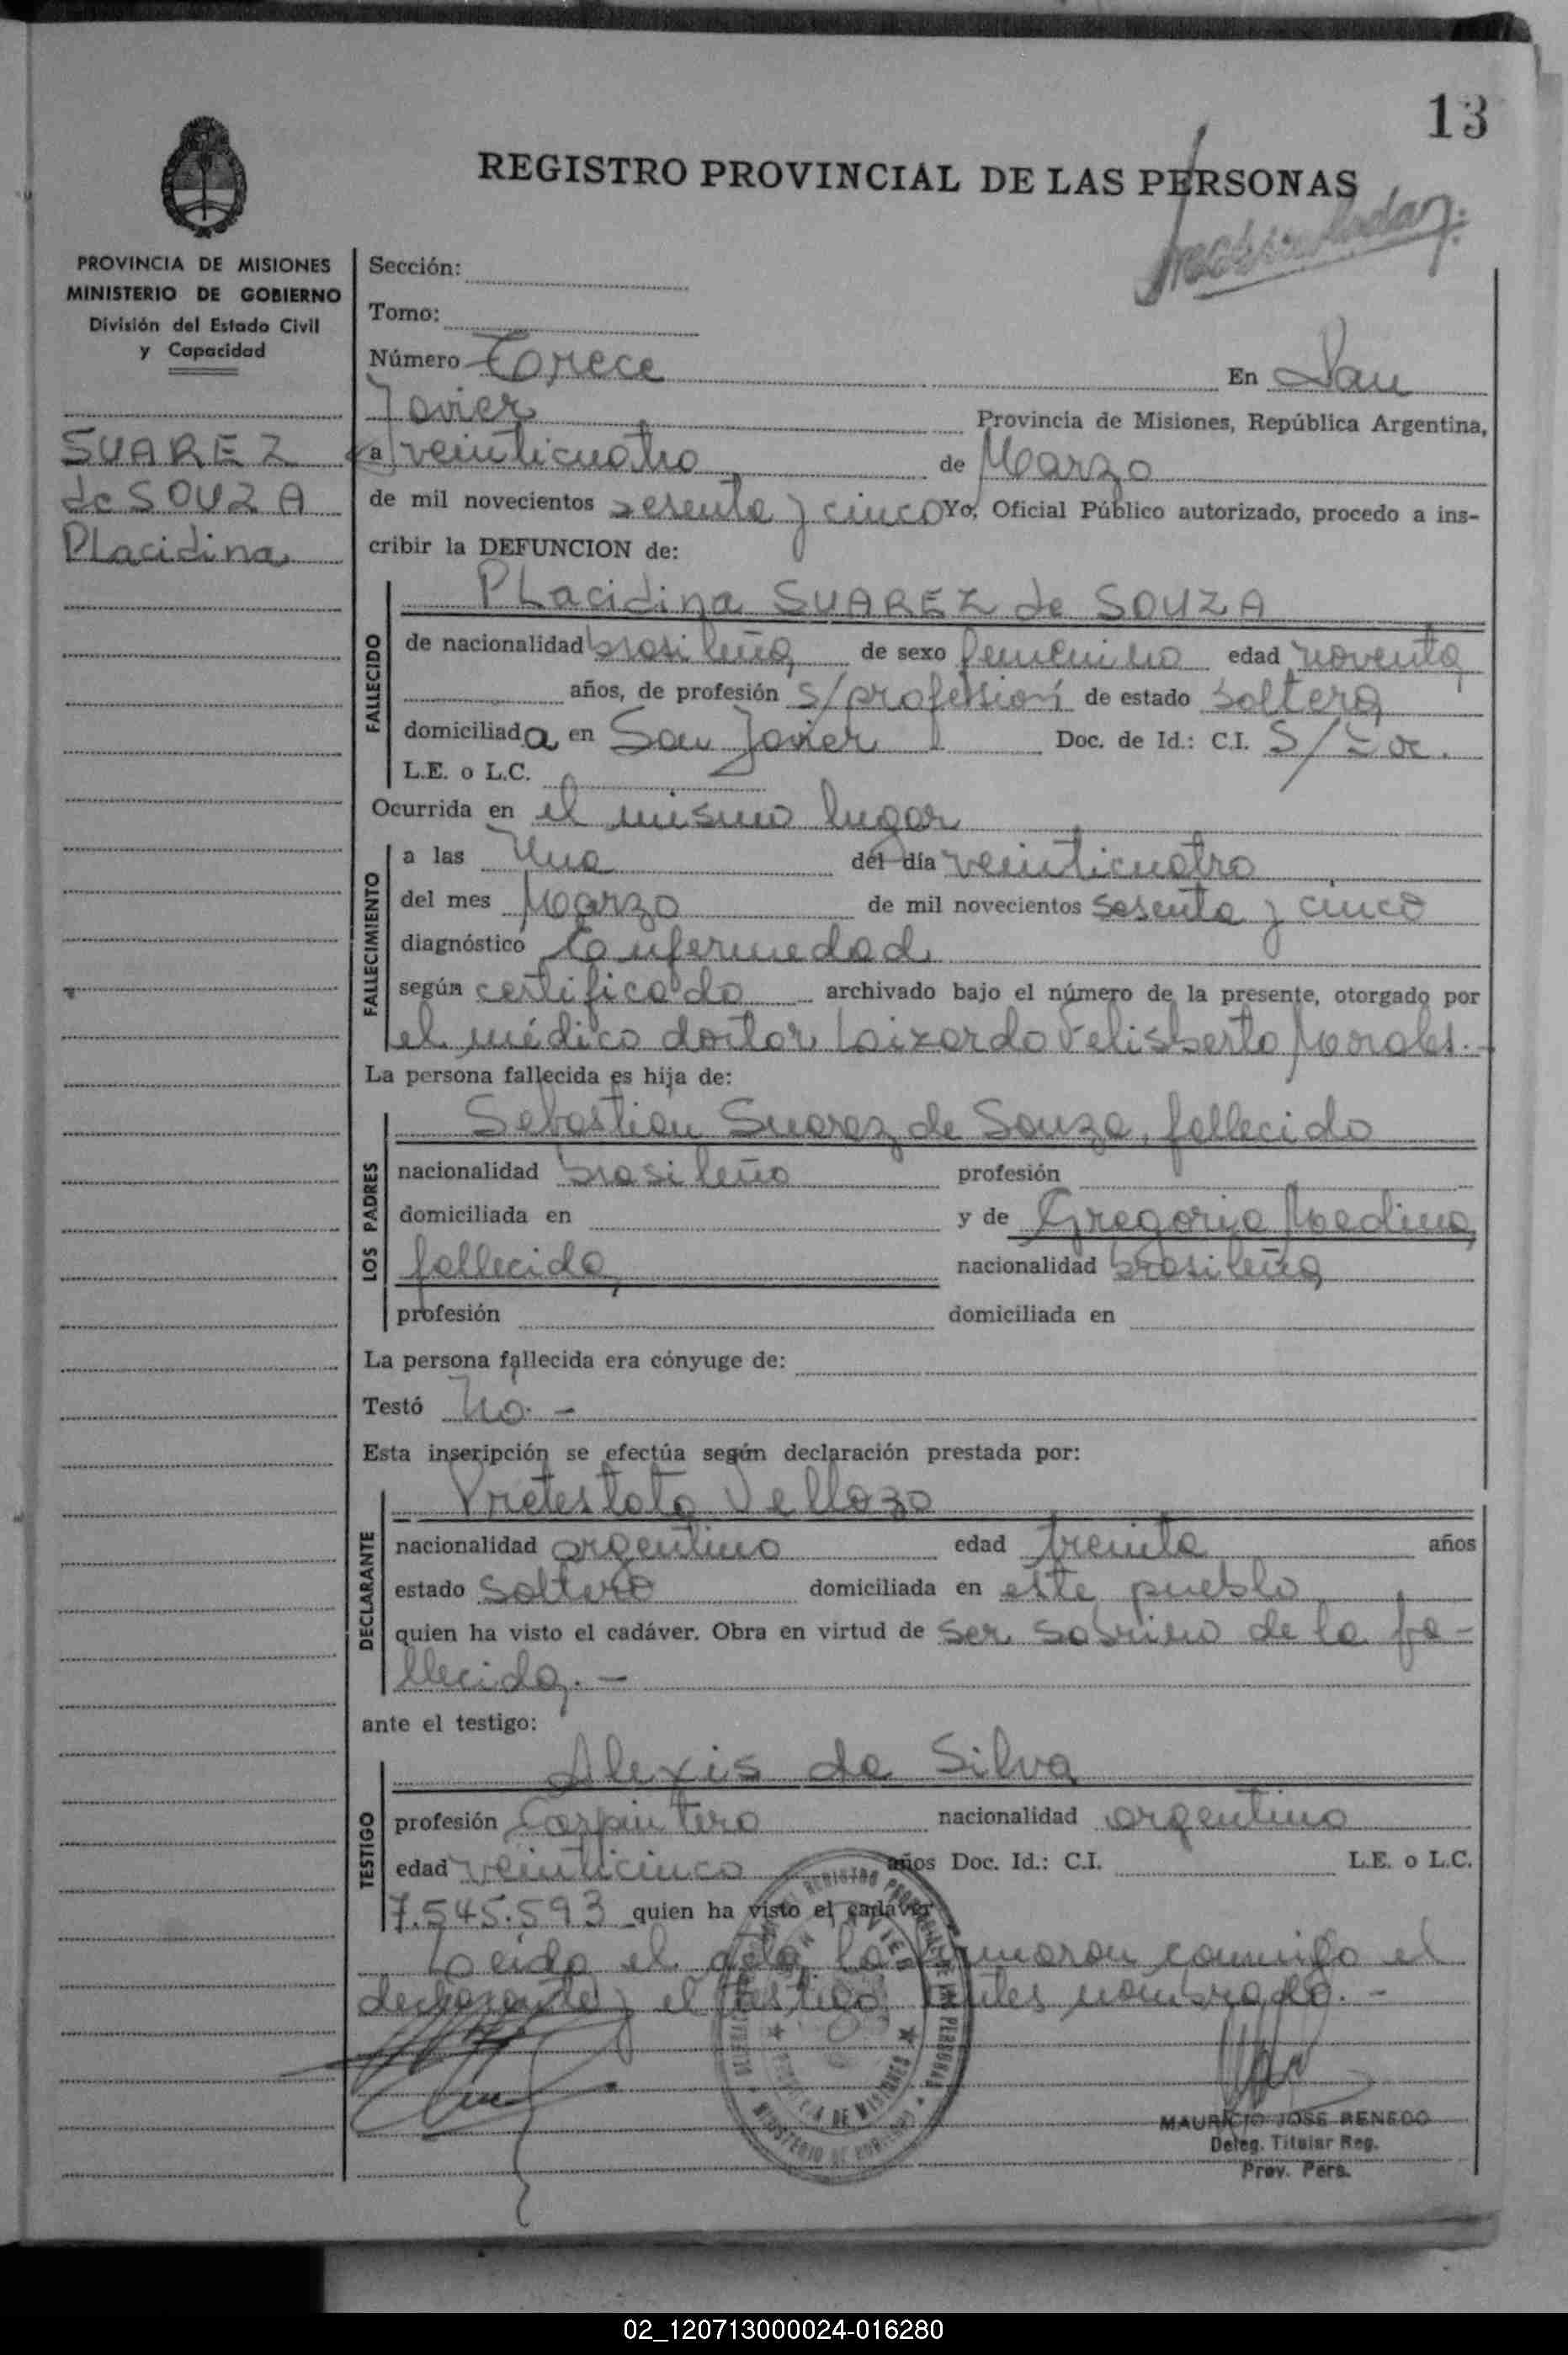 13
REGISTRO PROVINCIAL DE LAS PERSONAS
PROVINCIA DE MISIONES
MINISTERIO DE GOBIERNO
División del Estado Civil
y Capacidad
SUAREZ
de SOUZA
Placidina
Sección:
Tomo:
Número Torece En San
Javier Provincia de Misiones, República Argentina,
a veinticuatro de Marzo
de mil novecientos sesenta y cinco Yo, Oficial Público autorizado, procedo a ins-
cribir la DEFUNCION de:
FALLECIDO
Placidina SUAREZ de SOUZA
de nacionalidad brasileña de sexo femenino edad noventa
años, de profesión s/profession de estado soltera
domiciliada en San Javier Doc. de Id.: C.I. S/
L.E. o L.C.
Ocurrida en el mismo lugar
FALLECIMIENTO
a las Una del día veinticuatro
del mes Marzo de mil novecientos sesenta y cinco
diagnóstico Enfermedad
según certificado archivado bajo el número de la presente, otorgado por
el médico doctor Felisberto Morales.-
La persona fallecida es hija de:
LOS PADRES
Sebastian Suarez de Souza, fallecido
nacionalidad brasileño profesión
domiciliada en y de Gregoria Medina
fallecida nacionalidad brasileña
profesión domiciliada en
La persona fallecida era cónyuge de:
Testó No.-
Esta inscripción se efectúa según declaración prestada por:
DECLARANTE
Pretestato Vellozo
nacionalidad argentino edad treinta años
estado soltero domiciliada en este pueblo
quien ha visto el cadáver. Obra en virtud de ser sobrino de la fa-
llecida.-
ante el testigo:
TESTIGO
Alexis da Silva
profesión Carpintero nacionalidad argentino
edad veinticinco años Doc. Id.: C.I. L.E. o L.C.
7.545.593 quien ha visto el cadáver
Leida el acta, la firmaron conmigo el
declarante y el testigo antes nombrado.-
MAURICIO JOSE RENEDO
Deleg. Titular Reg.
Prov. Pers.
02_120713000024-016280